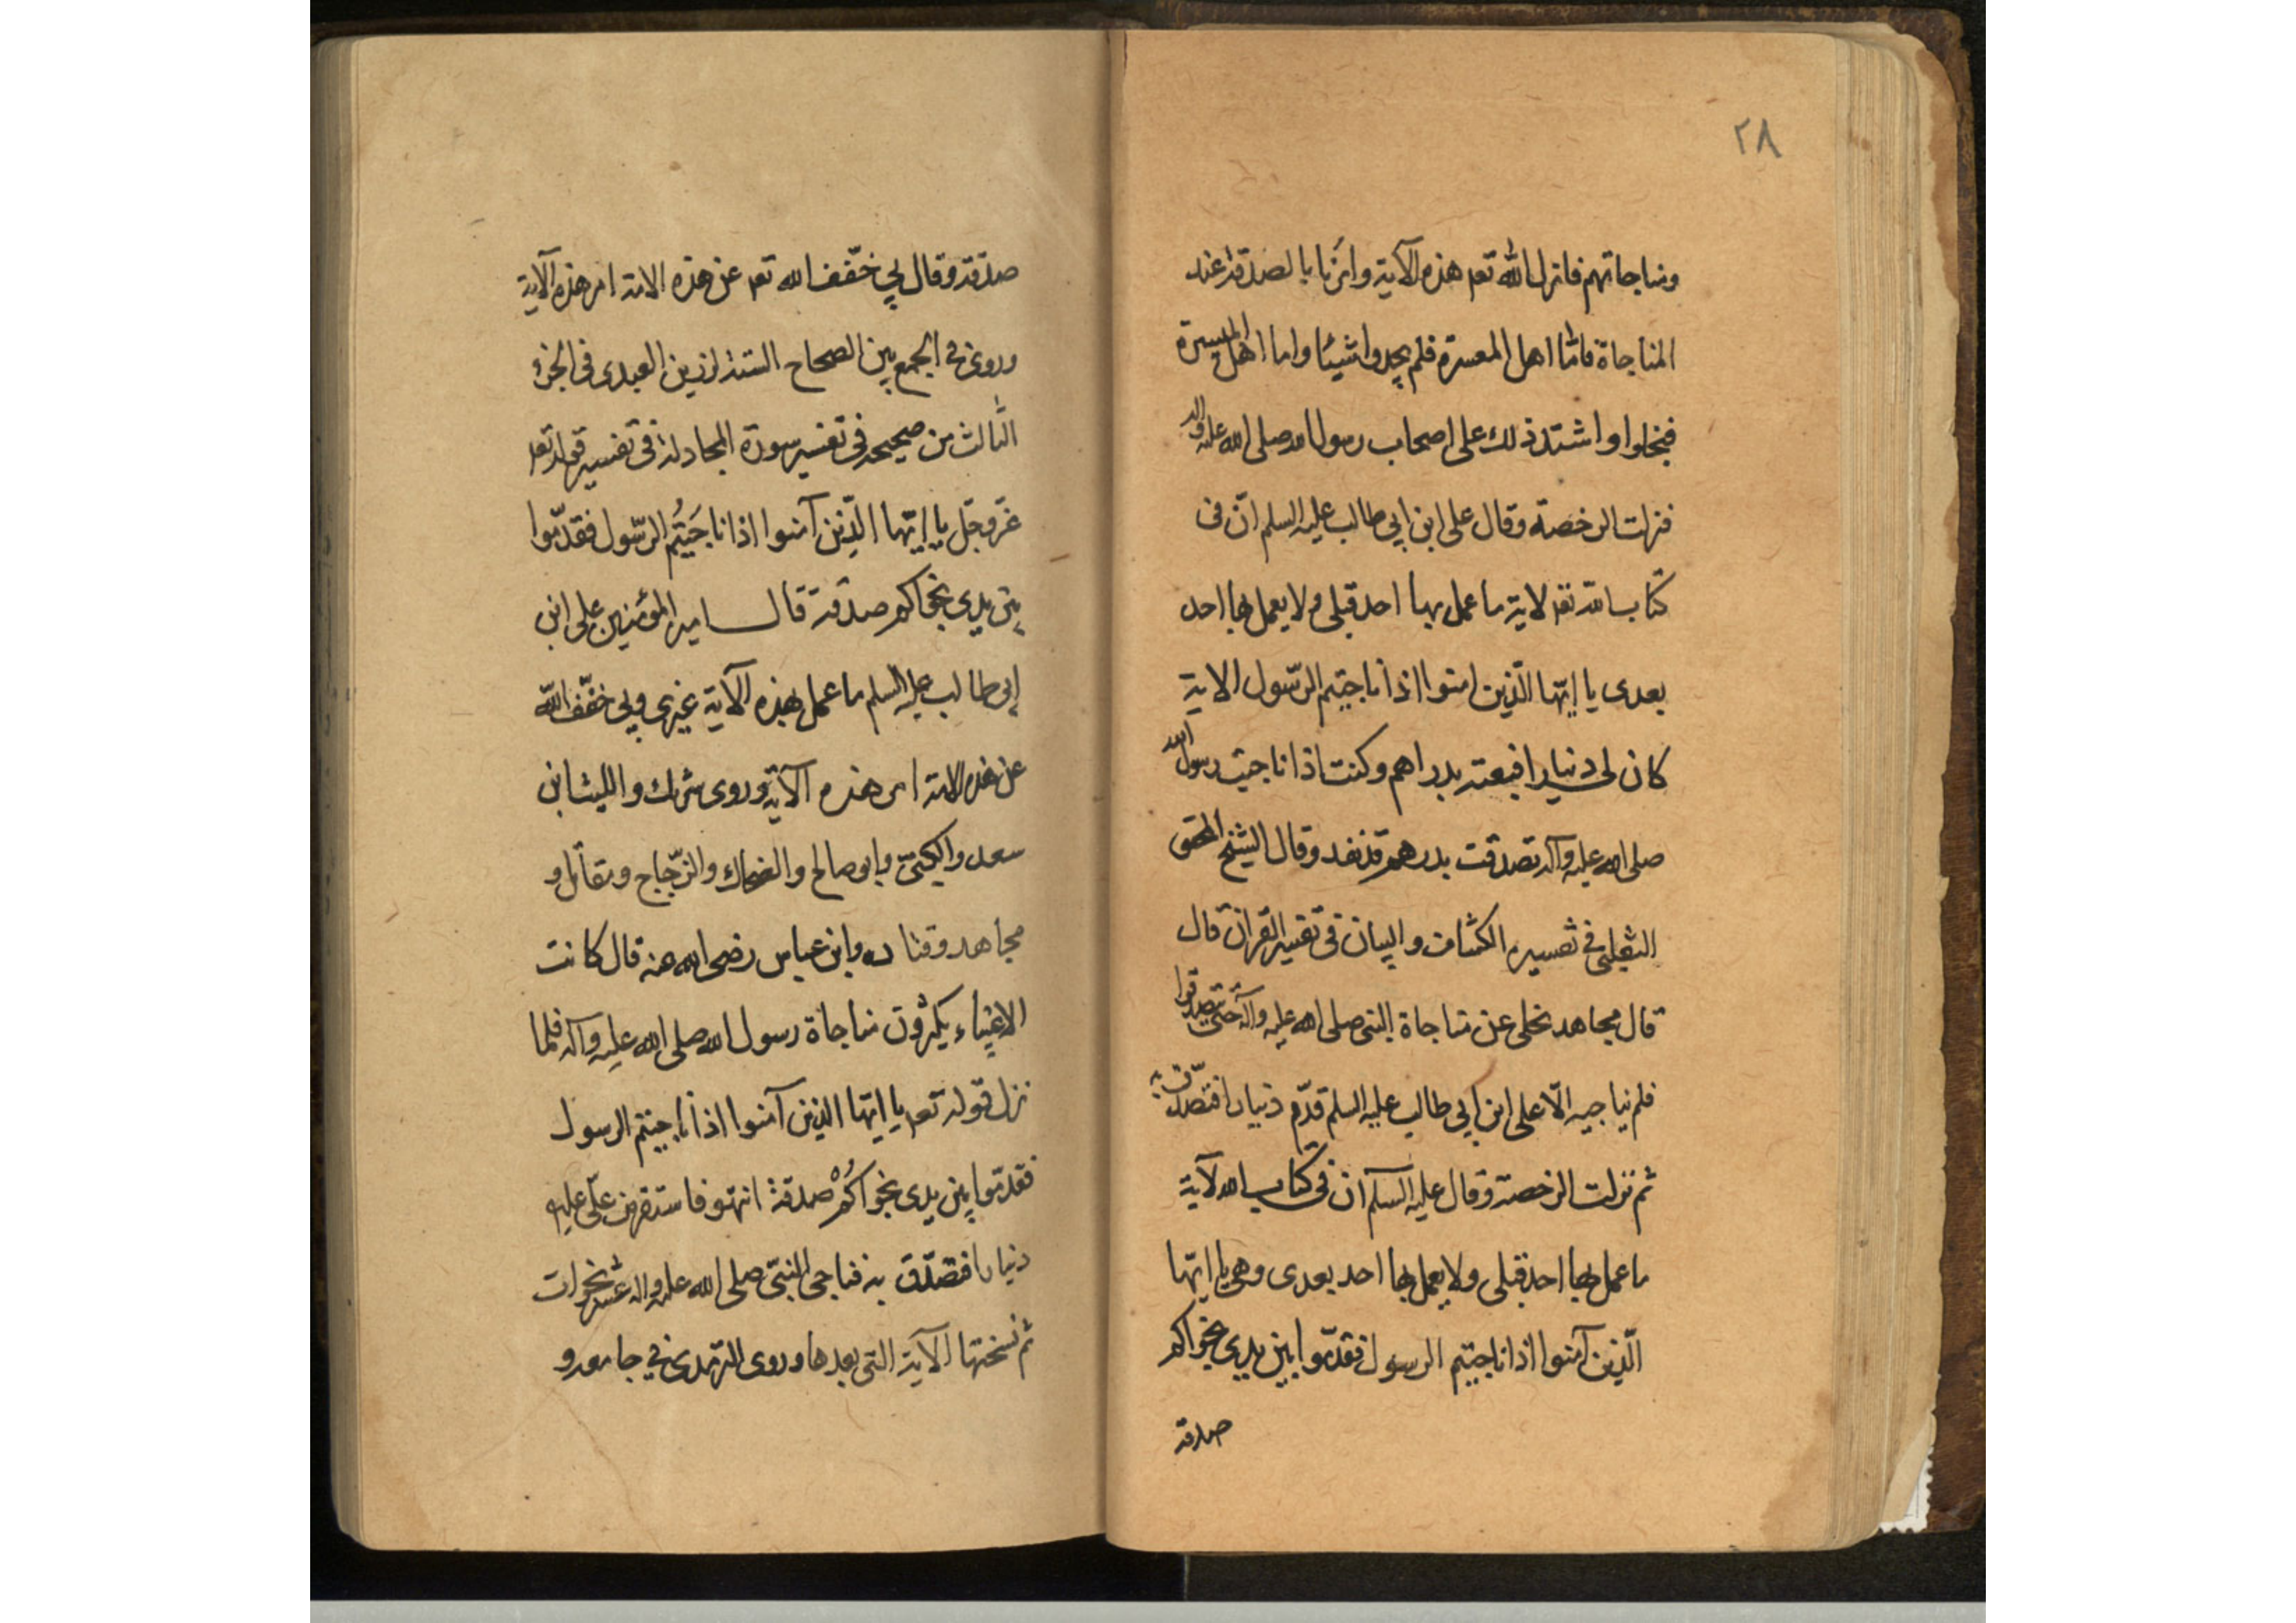 ٢٨
ومناجاتهم فانزل الله تعه هذه الآية وامرنا بالصدقة عند
المناجاة فامّا اهل المعسرة فلم يجدوا شيئا واما اهل الميسرة
فبخلوا واشتد ذلك على اصحاب رسول الله صلى الله عليه واله
فنزلت الرخصة وقال على ابن ابي طالب عليه السلم انّ فى
كتاب الله تعه لاية ما عمل بها احد قبلى ولا يعمل بها احد
بعدى يا ايّها الّذين امنوا اذا ناجيتم الرّسول الاية
كان لى دينارا فبعته بدراهم وكنت اذا ناجيت رسول الله
صلى الله عليه وآله تصدقت بدرهم قد نفد وقال الشيخ المحقق
الثعلبى فى تفسيره الكشاف والبيان فى تفسير القران قال
قال مجاهد نحلى عن مناجاة النبى صلى الله عليه وآله حتى يتصدقوا
فلم يناجيه الّا على ابن ابي طالب عليه السلم قدّم دينارا فتصدّق به
ثم نزلت الرخصة وقال عليه السلم ان فى كتاب الله لآية
ما عمل بها احد قبلى ولا يعمل بها احد بعدى وهى يا ايّها
الّذين آمنوا اذا ناجيتم الرسول فقدّموا بين يدى نجواكم
صدقة
صدقة وقال بي خفّف الله تعه عن هذه الامة امر هذه الآية
وروى فى الجمع بين الصحاح الستة لرزين العبدى فى الجزء
الثّالث من صحيحه فى تفسير سورة المجادلة فى تفسير قوله تعه
عزّ وجلّ يا ايّها الّذين آمنوا اذا ناجَيتُم الرّسول فقدّموا
بين يدى نجواكم صدقة قال امير المؤمنين على ابن
ابي طالب عليه السلم ما عمل بهذه الآية غيرى وبي خفّف الله
عن هذه الامة امر هذه الآية وروى شريك والليث ابن
سعد والكلبىّ وابو صالح والضحاك والزّجاج ومقاتل و
مجاهد وقتاده وابن عباس رضى الله عنه قال كانت
الاغنياء يكثرون مناجاة رسول الله صلى الله عليه وآله فلما
نزل قوله تعه يا ايّها الذين آمنوا اذا ناجيتم الرسول
فقدّموا بين يدى نجواكُمْ صدقة انتهوا فاستقرض علىّ عليه
دينارا فتصدّق به فناجى النبىّ صلى الله عليه واله عشر نجوات
ثم نسختها الآية التى بعدها وروى الترمدى فى جامعه و